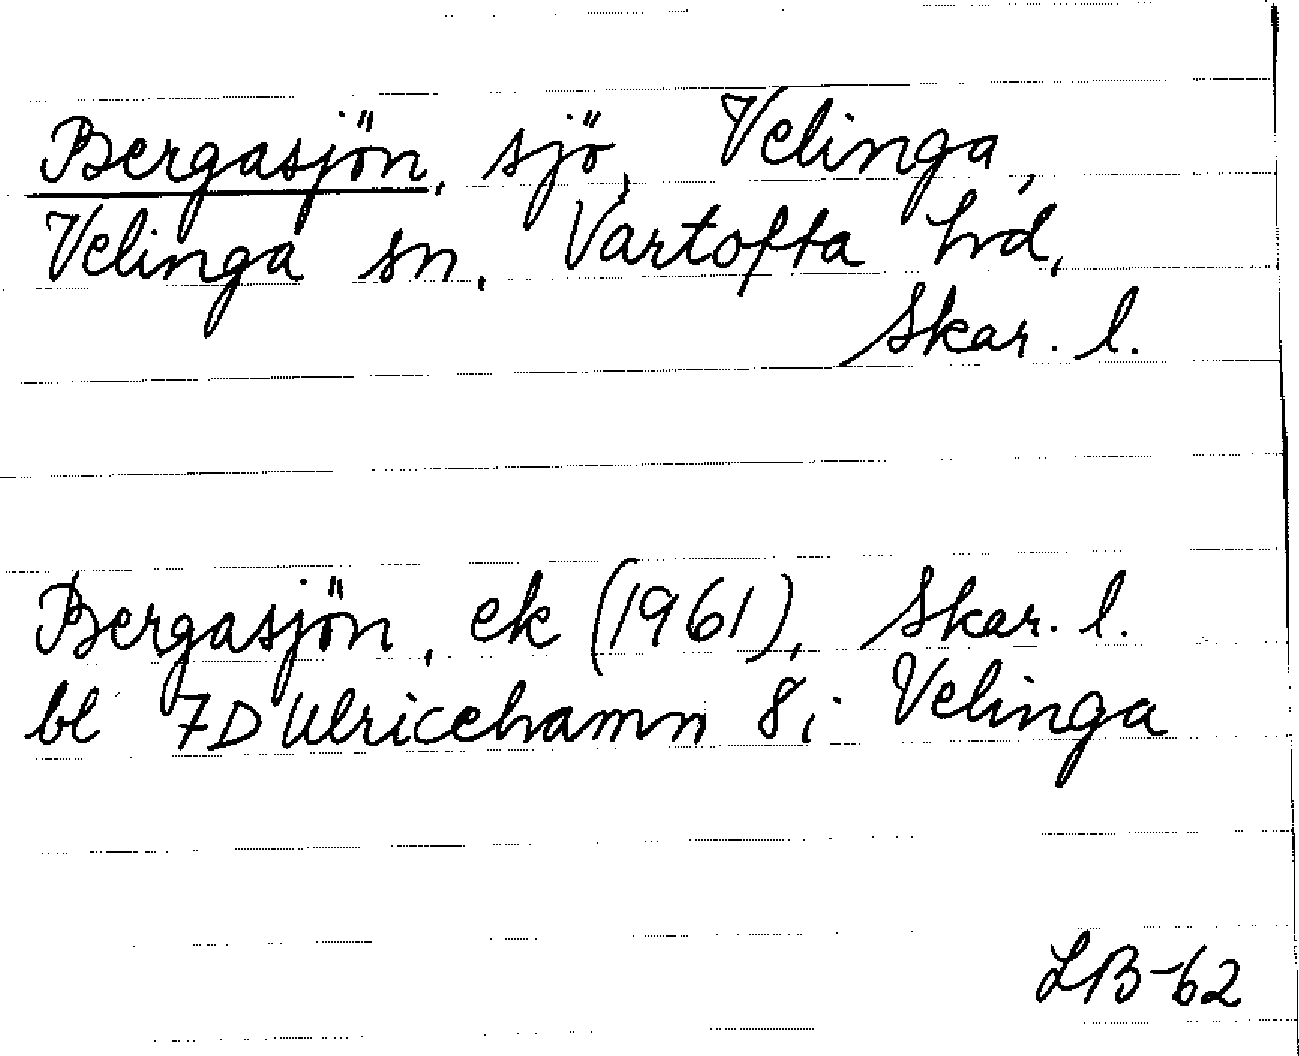 Bergasjön, sjö, Velinga,
Velinga sn, Vartofta hd,
Skar. l.
Bergasjön, ek (1961), Skar. l.
bl 7D Ulricehamn 8i Velinga
LB-62